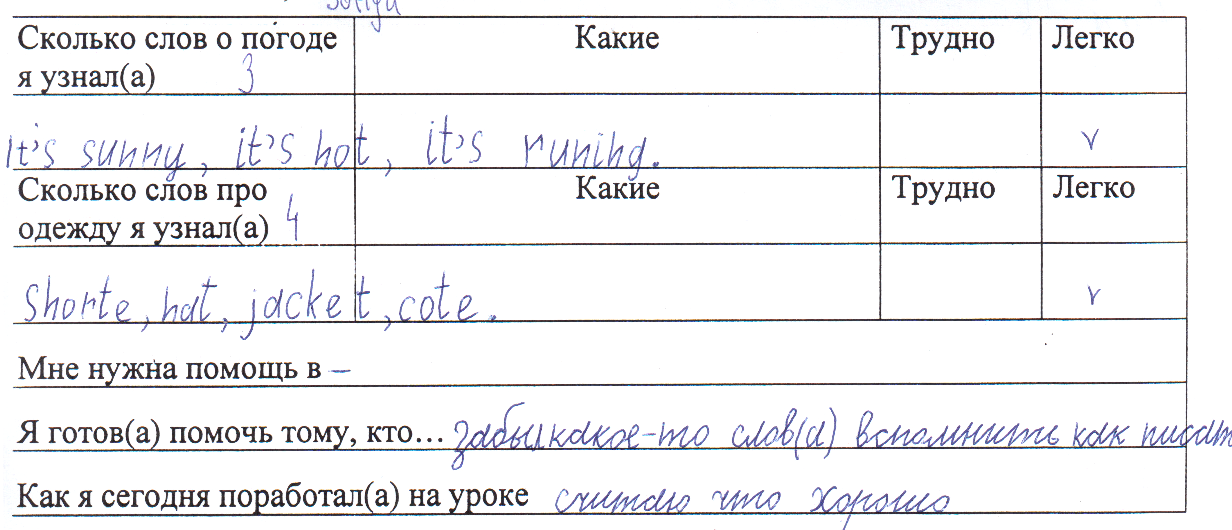 Сколько слов о погоде Какие Трудно Легко
я узнал(а) 3
It's sunny, it's hot, it's runing. v
Сколько слов про Какие Трудно Легко
одежду я узнал(а) 4
Shorte, hat, jacket, cote. v
Мне нужна помощь в –
Я готов(а) помочь тому, кто… забыл какое-то слов(а) вспомнить как писат
Как я сегодня поработал(а) на уроке считаю что хорошо